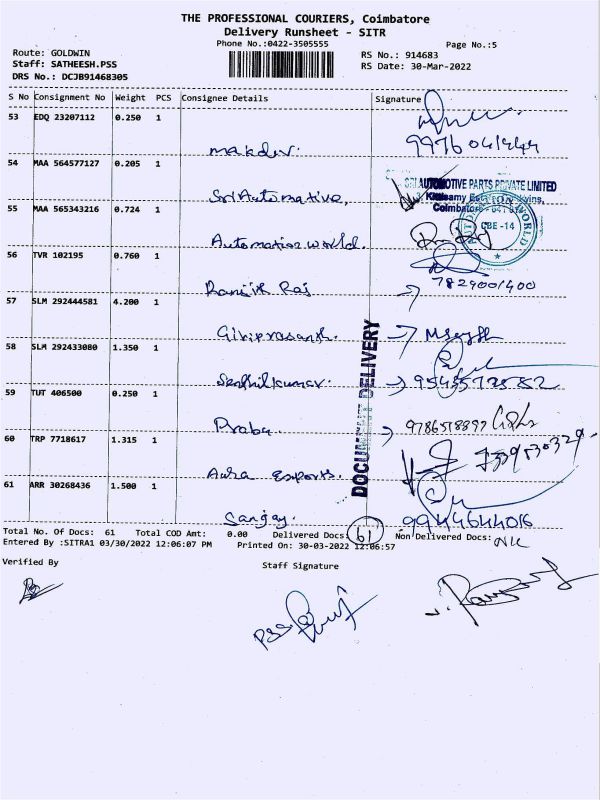 THE PROFESSIONAL COURIERS, Coimbatore
Delivery Runsheet - SITR
Phone No.:0422-3505555
Page No.:5
Route: GOLDWIN
Staff: SATHEESH.PSS
DRS No.: DCJB91468305
RS No.: 914683
RS Date: 30-Mar-2022
S No Consignment No Weight PCS Consignee Details Signature
53 EDQ 23207112 0.250 1
makdev.
9976 041444
54 MAA 564577127 0.205 1
Sri Automative,
SRI AUTOMOTIVE PARTS PRIVATE LIMITED
55 MAA 565343216 0.724 1
Automation world.
AUTOMATION WORLD
CBE -14
56 TVR 102195 0.760 1
Ranjith Raj
7829001400
57 SLM 292444581 4.200 1
Giriprasanth.
58 SLM 292433080 1.350 1
Senthilkumar.
59 TUT 406500 0.250 1
Prabu
60 TRP 7718617 1.315 1
Aura Exports.
61 ARR 30268436 1.500 1
Sanjay.
9944644016
DOCUMENT DELIVERY
Total No. Of Docs: 61 Total COD Amt: 0.00 Delivered Docs: 61 Non Delivered Docs: Nil
Entered By :SITRA1 03/30/2022 12:06:07 PM Printed On: 30-03-2022 12:06:57
Verified By Staff Signature